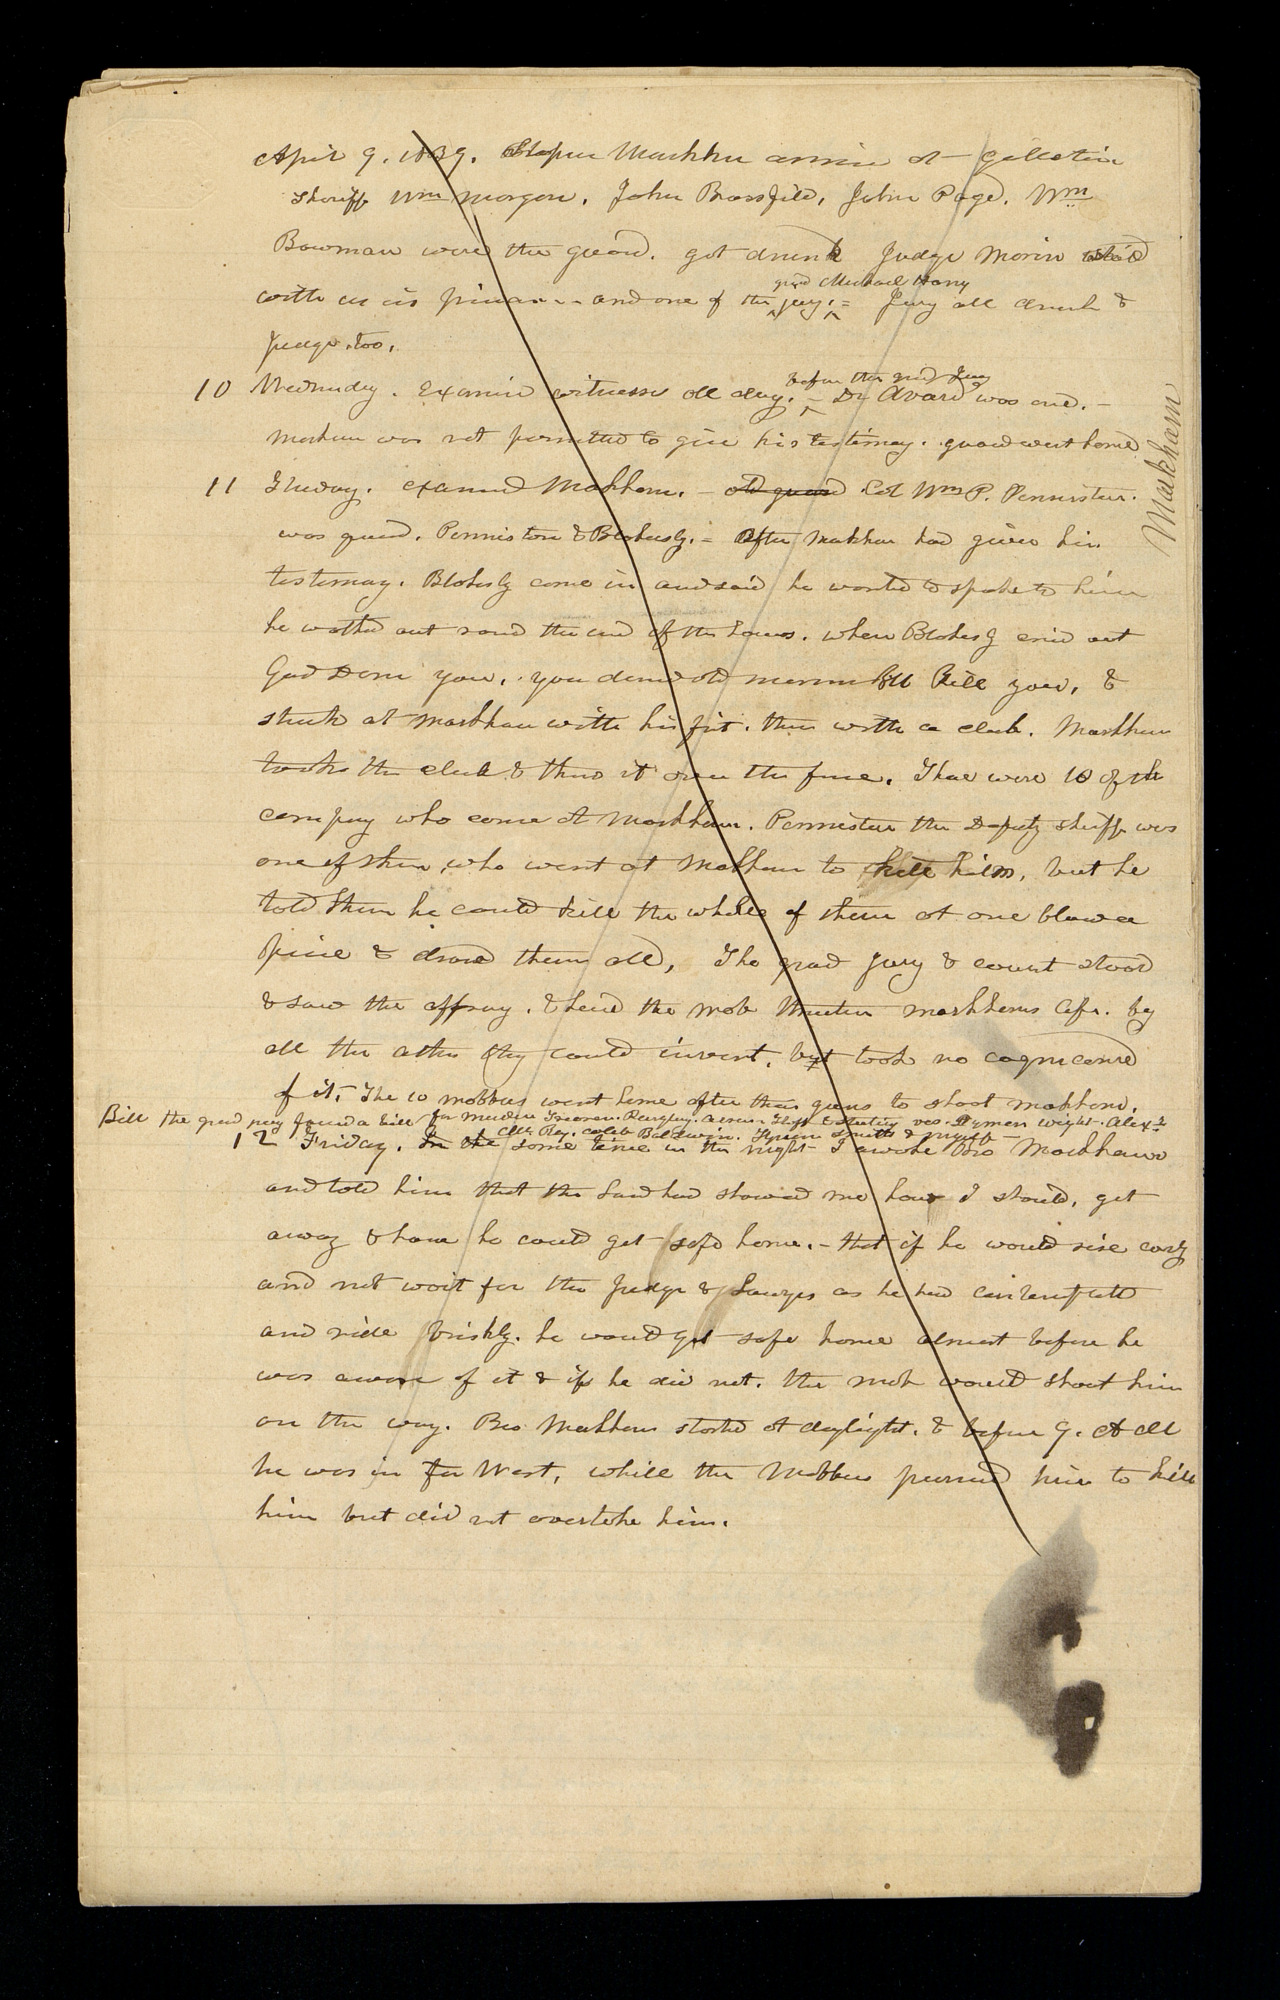 April 9. 1839. Stephen Markham arrived at Gallatin
Sheriff Wm Morgan, John Brassfild, John Page. Wm
Bowman were the guard. got drunk Judge Morin
with us as and one of the jury. = Jury all drunk &
grand Michael Hany
Judge. too.
10 Wednesday. Examind witnesses all day. – Dr Avard was one. –
before the grand Jury
Markham was not permitted to give his testimony. guard went home
11 Thursday. examined Markham. – old guard Col Wm P. Penniston.
was guard. Penniston & Blakesly. = After Markham had given his
testimony. Blakesly came in and said he wanted to speake to him
he walked out round the end of the house. when Blakesly cried out
God Dam you, you damd old mormon Ill Kill you, &
struck at Markham with his fist. then with a club. Markham
took the club & threw it over the fence. There were 10 of the
company who come at Markham. Penniston the Deputy sheriff was
one of them, who went at Markham to kill him, but he
told them he could kill the whole of them at one blow a
piece & drove them all, The grand Jury & court stood
& saw the affray. & heard the mob threaten markhams life. by
all the oaths they could invent. but took no cognizance
of it. The 10 mobbers went home after their guns to shoot markham.
Bill the grand jury found a bill for Murder Treason. Burglary. Arson Theft & stealing vs. Lyman Wight. Alexr
McRay. caleb Baldwin. Hyrum Smith & myself –
12 Friday. In the some time in the night I awoke Bro Markham
and told him that the Lord had showed me how I should, get
away & how he could get safe home. – that if he would rise early
and not wait for the Judge & Lawyers as he had contemplated
and ride briskly. he would get safe home almost before he
was aware of it & if he did not. the mob would shoot him
on the way. Bro Markham started at daylight. & before 9.
he was in Far West, while the Mobbers pursued him to kill
him but did not overtake him.
Markham